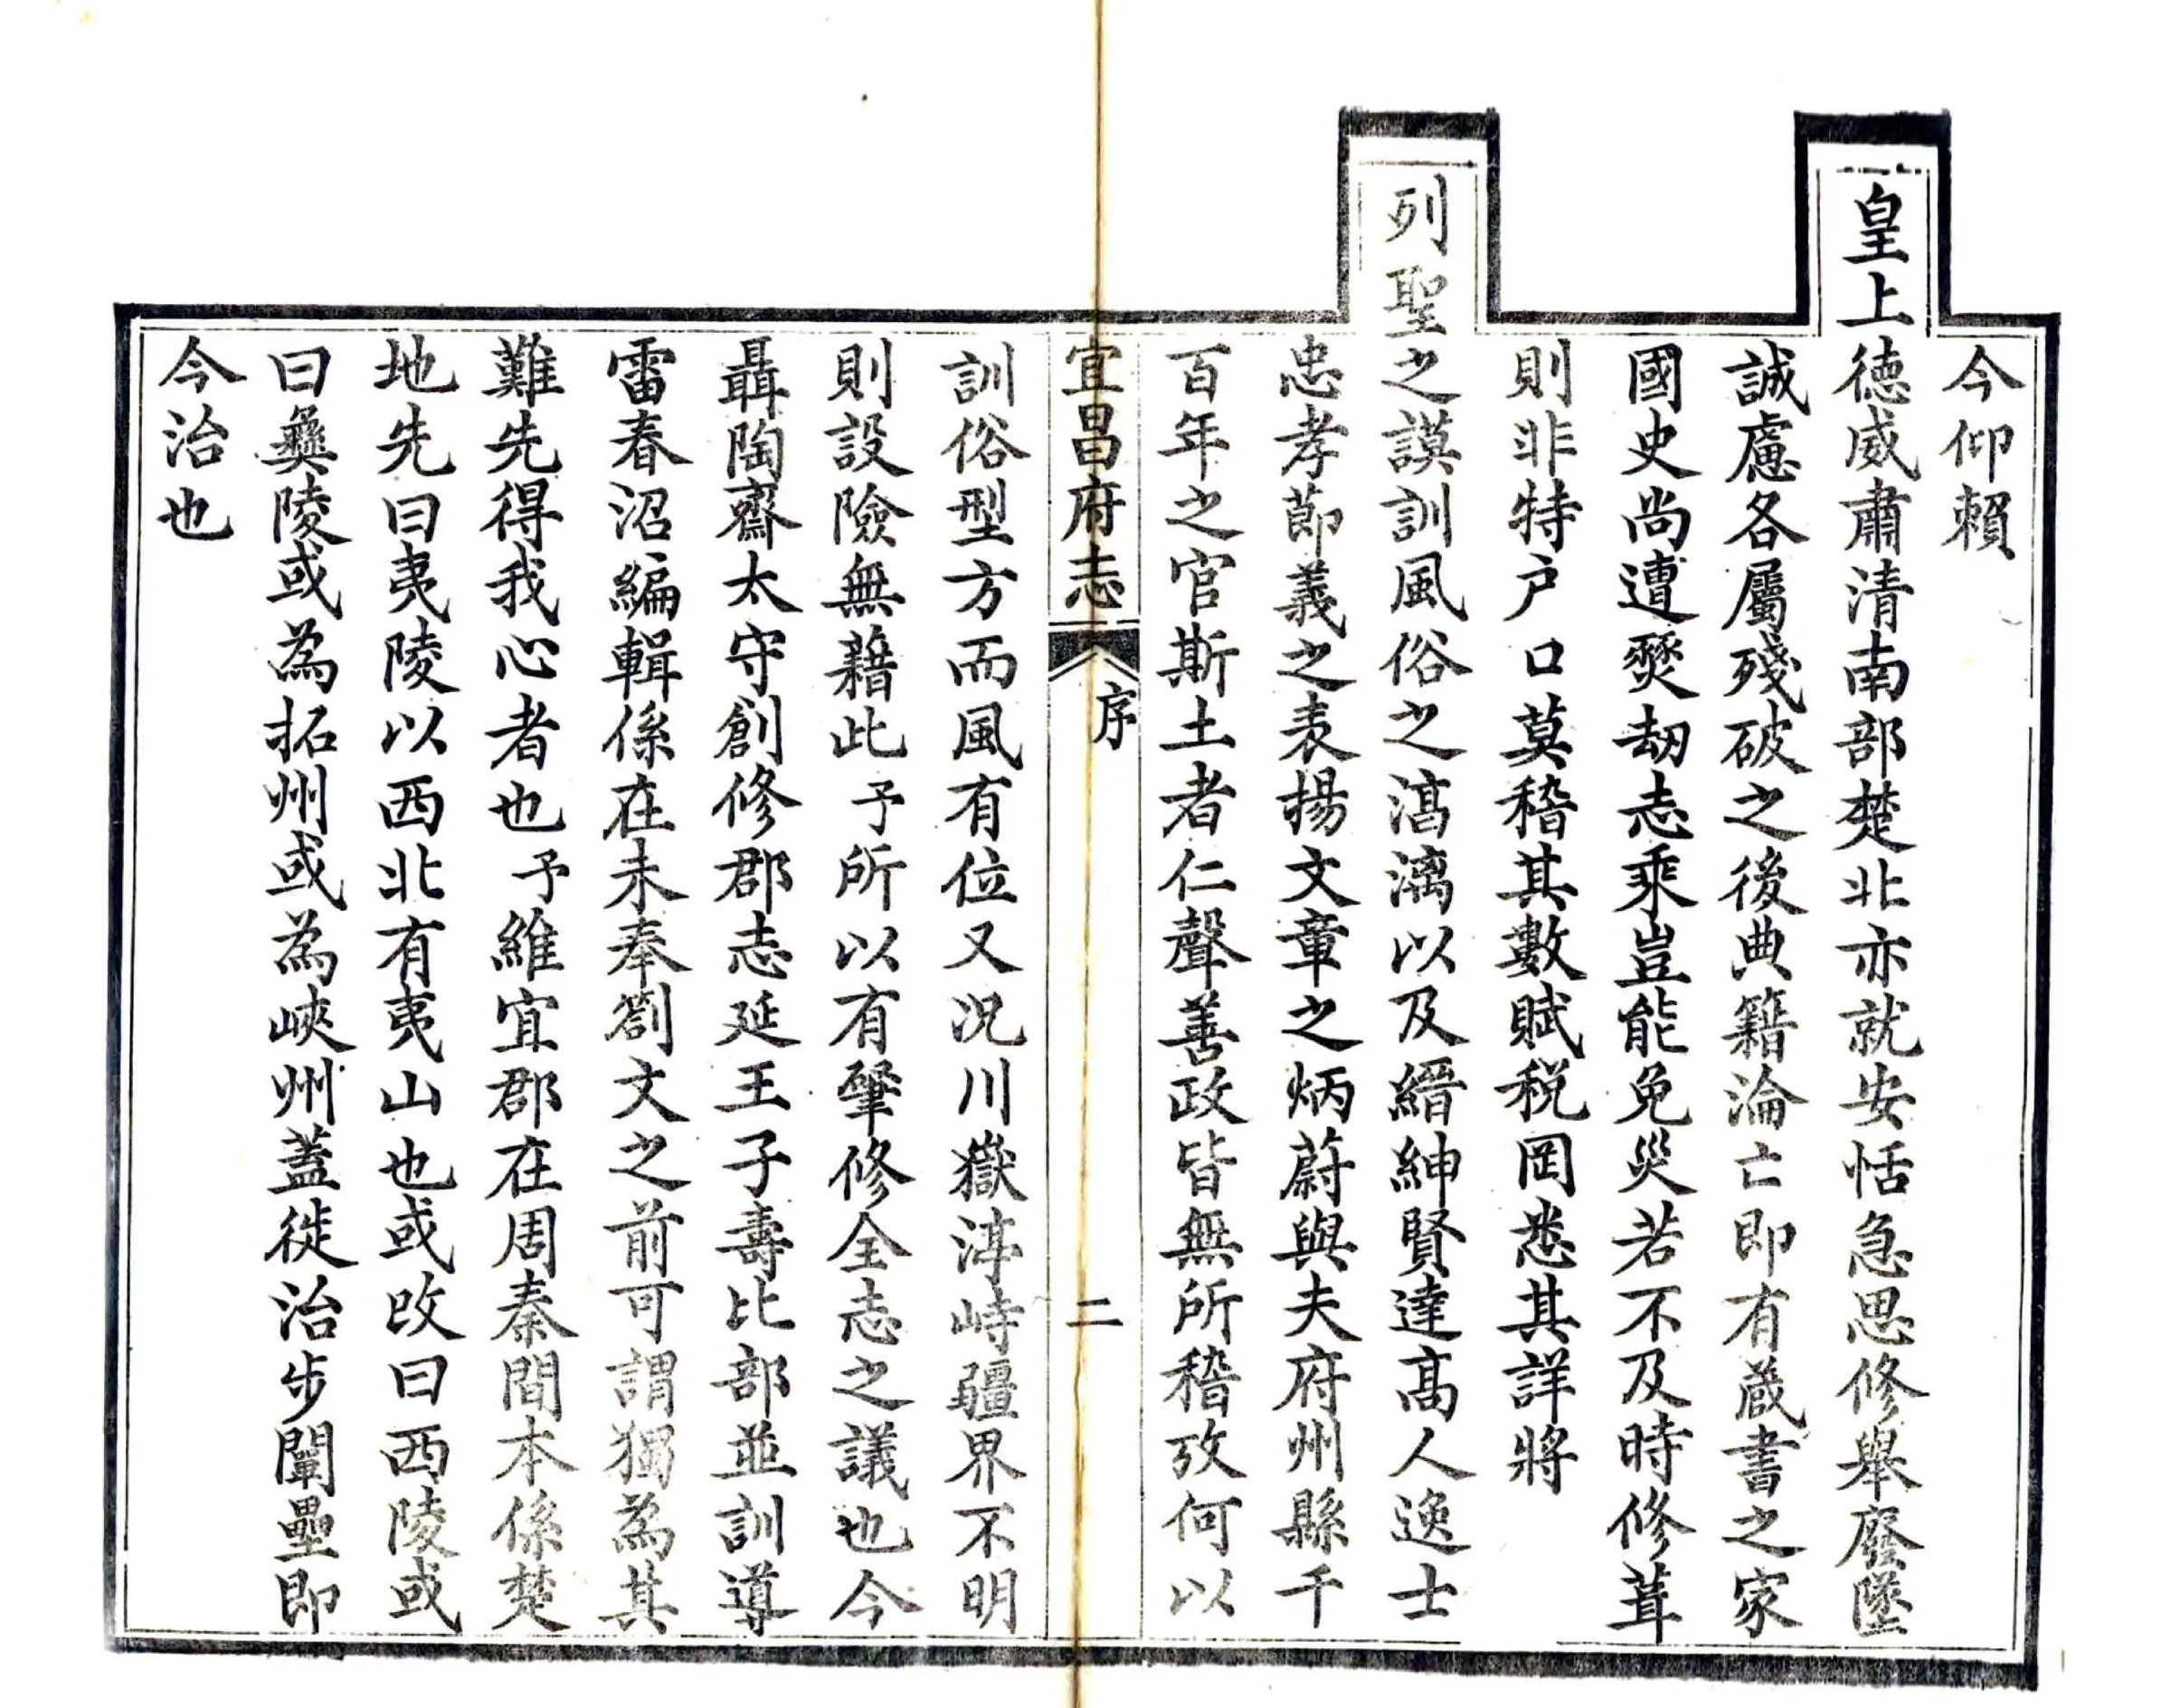 今仰賴
皇上德威肅清南部楚北亦就安恬急思修舉廢墜
誠慮各屬殘破之後典籍淪亡即有蔵書之家
國史尚遭燹劫志乘豈能免災若不及時修葺
則非特户口莫稽其數賦税罔悉其詳將
列聖之謨訓風俗之漓以及縉紳賢達髙人逸士
忠孝節義之表揚文章之炳蔚與夫府州縣千
百年之官斯土者仁聲善政皆無所稽攷何以
宜昌府志 序 二
訓俗型方而風有位又况川嶽渟峙疆界不明
則設險無藉此予所以有肈修全志之議也今
聶陶齋太守創修郡志延王子壽比部並訓導
雷春沼編輯係在未奉劄文之前可謂獨為其
難先得我心者也予維宜郡在周秦間本係楚
地先曰夷陵以西北有夷山也或改曰西陵或
曰彝陵或為拓州或為峽州蓋徙治步闡壘即
今治也